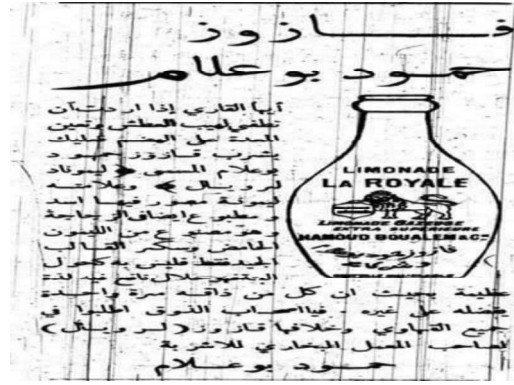 فازوز
حمود بو علام
أيها القاري إذا اردت أن
تطفي لهيب العطش وتعين
المعدة على الهضم فعليك
بشرب قازوز حمود
بوعلام المسمى « ليموناد
لرويال » وعلامته
ليمونة مصور فيها اسد
و مطبوع ايضا في الزجاجة
هو مصنوع من الليمون
الحامض وسكر القالب
الجيد فقط
عظيمة بحيث ان كل من ذاقه مرة واحدة
يفضله على غيره . فيا اصحاب الذوق اطلبوا في
جميع القهاوي وخلافها قازوز (لرويال)
لصاحب المعمل البخاري للاشربة
حمود بوعلام
LIMONADE
LA ROYALE
LIMONADE GAZEUSE
EXTRA SUPERIEURE
HAMOUD BOUALEM & Cie